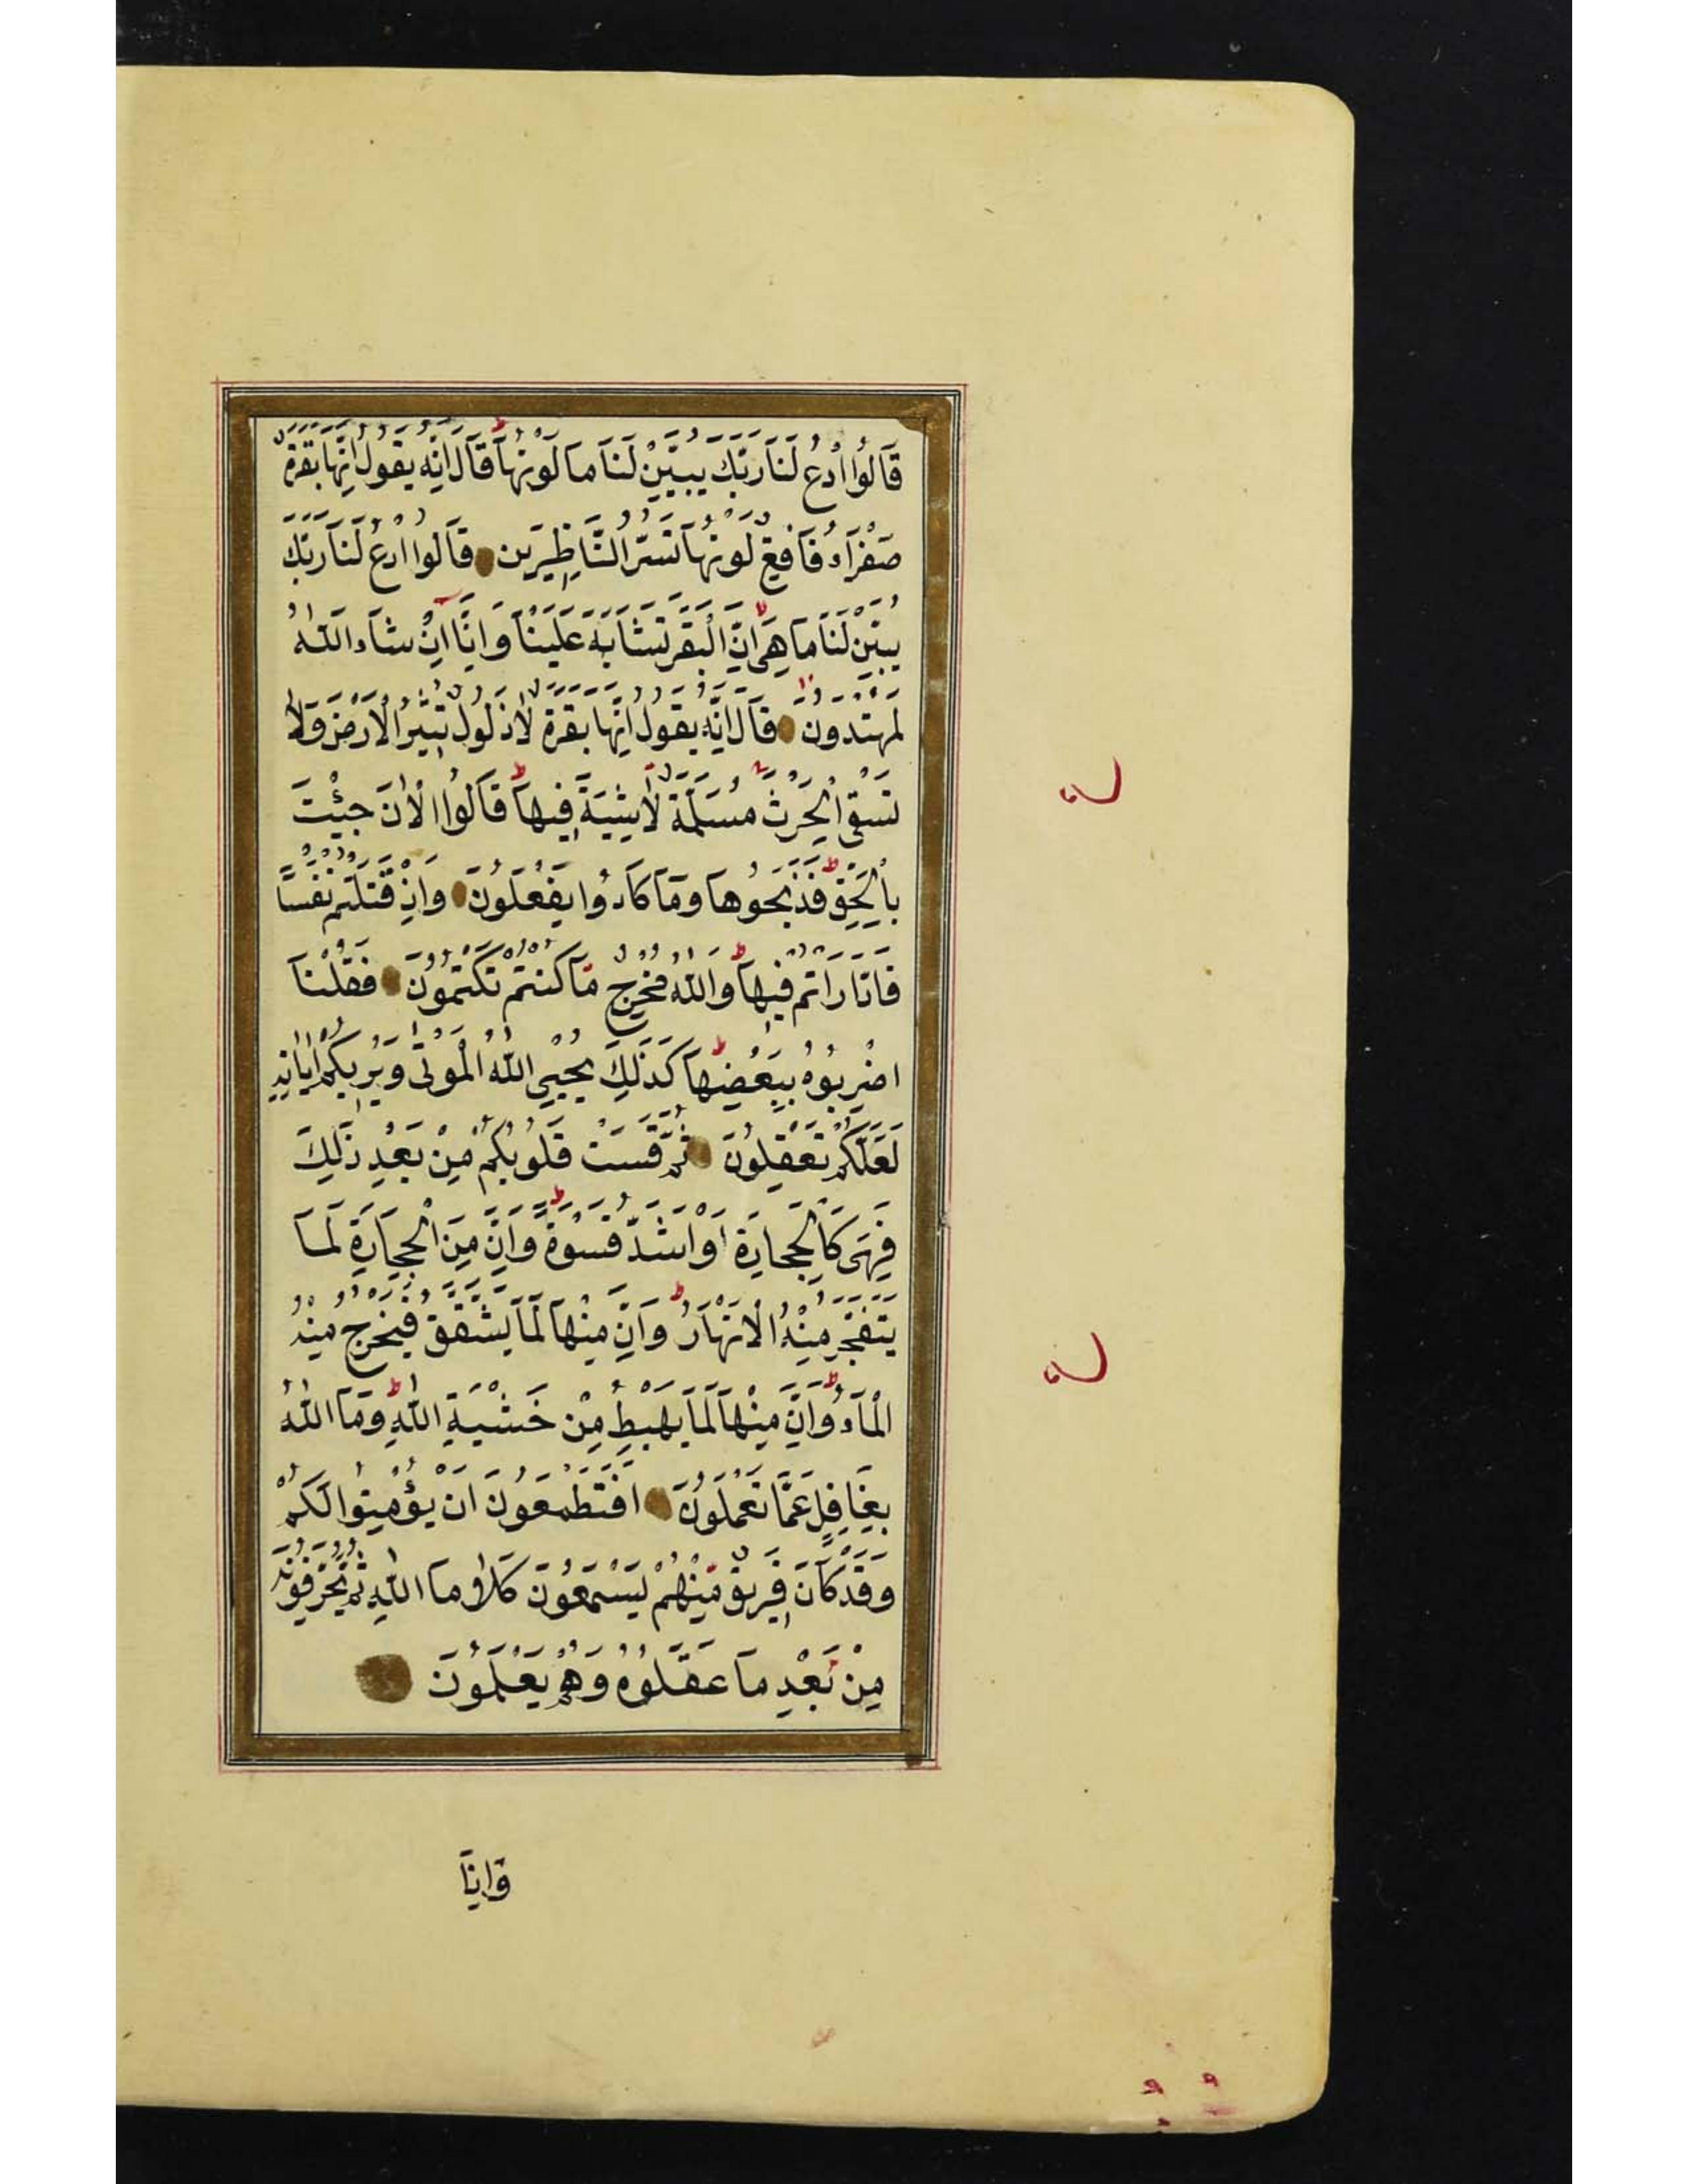 قَالُوا ادْعُ لَنَا رَبَّكَ يُبَيِّنْ لَنَا مَا لَوْنُهَا قَالَ اِنَّهُ يَقُولُ اِنَّهَا بَقَرَةٌ
صَفْرَاۤءُ فَاقِعٌ لَوْنُهَا تَسُرُّ النَّاظِرِينَ قَالُوا ادْعُ لَنَا رَبَّكَ
يُبَيِّنْ لَنَا مَا هِيَ اِنَّ الْبَقَرَ تَشَابَهَ عَلَيْنَا وَاِنَّا اِنْ شَاۤءَ اللّٰهُ
لَمُهْتَدُونَ قَالَ اِنَّهُ يَقُولُ اِنَّهَا بَقَرَةٌ لَا ذَلُولٌ تُثِيرُ الْاَرْضَ وَلَا
تَسْقِي الْحَرْثَ مُسَلَّمَةٌ لَا شِيَةَ فِيهَا قَالُوا الْاٰنَ جِئْتَ
بِالْحَقِّ فَذَبَحُوهَا وَمَا كَادُوا يَفْعَلُونَ وَاِذْ قَتَلْتُمْ نَفْسًا
فَادَّارَاْتُمْ فِيهَا وَاللّٰهُ مُخْرِجٌ مَا كُنْتُمْ تَكْتُمُونَ فَقُلْنَا
اضْرِبُوهُ بِبَعْضِهَا كَذٰلِكَ يُحْيِي اللّٰهُ الْمَوْتٰى وَيُرِيكُمْ اٰيَاتِهِ
لَعَلَّكُمْ تَعْقِلُونَ ثُمَّ قَسَتْ قُلُوبُكُمْ مِنْ بَعْدِ ذٰلِكَ
فَهِيَ كَالْحِجَارَةِ اَوْ اَشَدُّ قَسْوَةً وَاِنَّ مِنَ الْحِجَارَةِ لَمَا
يَتَفَجَّرُ مِنْهُ الْاَنْهَارُ وَاِنَّ مِنْهَا لَمَا يَشَّقَّقُ فَيَخْرُجُ مِنْهُ
الْمَاۤءُ وَاِنَّ مِنْهَا لَمَا يَهْبِطُ مِنْ خَشْيَةِ اللّٰهِ وَمَا اللّٰهُ
بِغَافِلٍ عَمَّا تَعْمَلُونَ اَفَتَطْمَعُونَ اَنْ يُؤْمِنُوا لَكُمْ
وَقَدْ كَانَ فَرِيقٌ مِنْهُمْ يَسْمَعُونَ كَلَامَ اللّٰهِ ثُمَّ يُحَرِّفُونَهُ
مِنْ بَعْدِ مَا عَقَلُوهُ وَهُمْ يَعْلَمُونَ
وَاِذَا